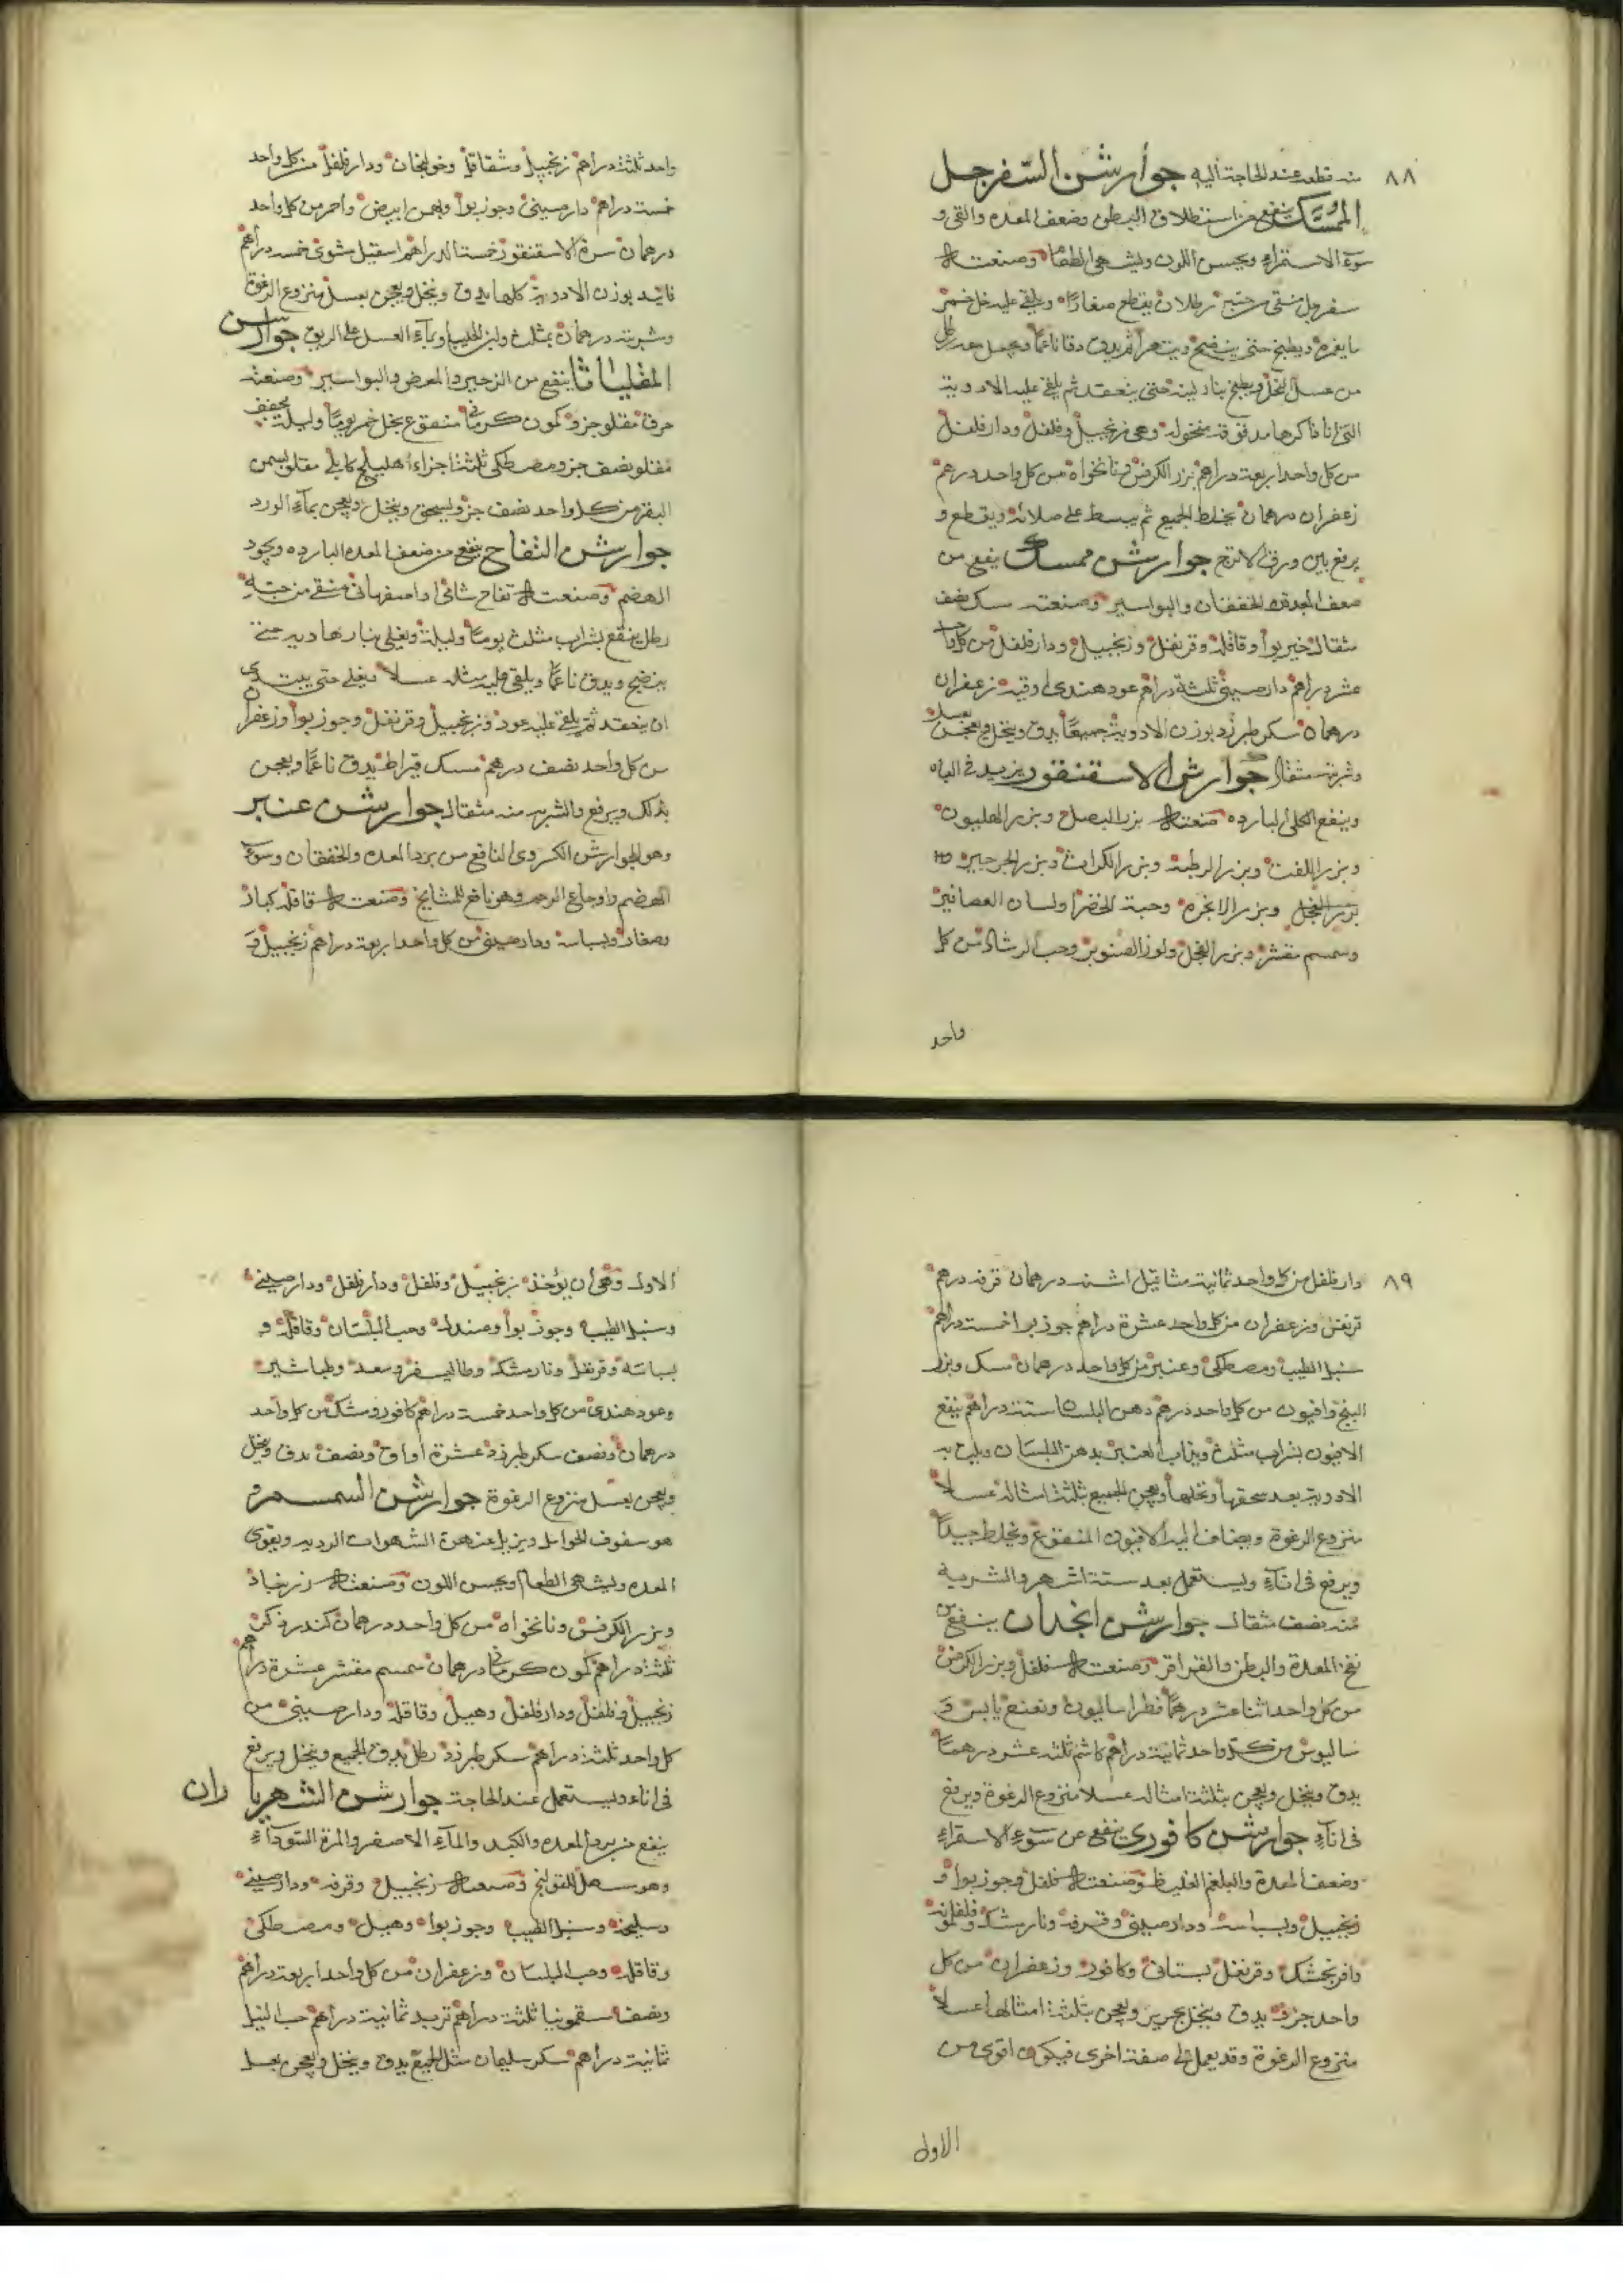 ٨٨
منه قطعه عند الحاجة اليه جوارشن السفرجل
الممسك ينفع من استطلاق البطن وضعف المعده والقى و
سوء الاستمراء ويحسن اللون ويشهى الطعام وصنعته
سفرجل منقى من حبه رطلان يقطع صغارًا ويلقى عليه خل خمر
ما يغمره ويطبخ حتى ينضج ويتهرأ ثم يدق دقا ناعمًا ويجعل معه رطل
من عسل النحل ويطبخ بنار لينه حتى ينعقد ثم يلقى عليه الادوية
التى انا ذاكرها مدقوقه منخوله وهى زنجبيل وفلفل ودار فلفل
من كل واحد اربعة دراهم بزر الكرفس ونانخواه من كل واحد درهم
زعفران درهمان يخلط الجميع ثم يبسط على صلائه ويقطع و
يرفع بين ورق الاترج جوارشن ممسك ينفع من
ضعف المعده والخفقان والبواسير وصنعته مسك نصف
مثقال خيربوا وقاقله وقرنفل وزنجبيل ودار فلفل من كل واحد
عشر دراهم دارصينى ثلثة دراهم عود هندى اوقيه زعفران
درهمان سكر طبرزد بوزن الادوية جميعًا يدق وينخل ويعجن بعسل
وشربته مثقال جوارشن الاسقنقور يزيد فى الباه
وينفع الكلى البارده صنعته بزر البصل وبزر الهليون
وبزر اللفت وبزر الرطبه وبزر الكراث وبزر الجرجير
بزر الفجل وبزر الانجره وحبة الخضرا ولسان العصافير
وسمسم مقشر وبزر الفجل ولوز الصنوبر وحب الرشاد من كل
واحد
واحد ثلثة دراهم زنجبيل وشقاقل وخولنجان ودار فلفل من كل واحد
خمسة دراهم دارصينى وجوز بوا وبهمن ابيض واحمر من كل واحد
درهمان سرة الاسقنقور خمسة دراهم اسقيل مشوى خمسه دراهم
فانيد بوزن الادوية كلها يدق وينخل ويعجن بعسل منزوع الرغوة
وشربته درهمان بمثلث ولبن الحليب او بماء العسل على الريق جوارشن
المقلياثا ينفع من الزحير والمغص والبواسير وصنعته
حرف مقلو جزو كمون كرمانى منقوع بخل خمر يومًا وليلة يجفف
مقلو نصف جزو مصطكى ثلثة اجزاء اهليلج كابلى مقلو بسمن
البقر من كل واحد نصف جزو يسحق وينخل ويعجن بماء الورد
جوارشن التفاح ينفع من ضعف المعده البارده ويجود
الهضم وصنعته تفاح شامى او اصفهانى منقى من حبه
رطل ينقع بشراب مثلث يومًا وليلة ويغلى بنار هاديه حتى
ينضج ويدق ناعمًا ويلقى عليه مثله عسلا ويغلى حتى يبتدى
ان ينعقد ثم يلقى عليه عود وزنجبيل وقرنفل وجوز بوا وزعفران
من كل واحد نصف درهم مسك قيراط يدق ناعمًا ويعجن
بذلك ويرفع والشربه منه مثقال جوارشن عنبر
وهو الجوارشن الكسروى النافع من برد المعده والخفقان وسوء
الهضم واوجاع الرحم وهو نافع للمشايخ وصنعته قاقله كبار
وصغار وبسباسه ودارصينى من كل واحد اربعة دراهم زنجبيل و
٨٩
دار فلفل من كل واحد ثمانية مثاقيل اشنه درهمان قرفه درهم
قرنفل وزعفران من كل واحد عشرة دراهم جوز بوا خمسة دراهم
سنبل الطيب ومصطكى وعنبر من كل واحد درهمان مسك وبزر
البنج وافيون من كل واحد درهم دهن البلسان ستة دراهم ينقع
الافيون بشراب مثلث ويذاب العنبر بدهن البلسان ويلت به
الادوية بعد سحقها ونخلها ويعجن الجميع بثلثة امثاله عسلًا
منزوع الرغوة ويضاف اليه الافيون المنقوع ويخلط جيدًا
ويرفع فى اناء ويستعمل بعد ستة اشهر والشربة
منه نصف مثقال جوارشن انجدان ينفع من
نفخ المعدة والبطن والقراقر وصنعته فلفل وبزر الكرفس
من كل واحد اثنا عشر درهمًا فطراساليون ونعنع يابس و
ساليوس من كل واحد ثمانية دراهم كاشم ثلثه عشر درهمًا
يدق وينخل ويعجن بثلثة امثاله عسلا منزوع الرغوة ويرفع
فى اناء جوارشن كافورى ينفع من سوء الاستمراء
وضعف المعدة والبلغم الغليظ وصنعته فلفل وجوز بوا و
زنجبيل وبسباسه ودارصينى وقرفه ونارمشك وفلفلمونه
وافرنجمشك وقرنفل بستانى وكافور وزعفران من كل
واحد جزو يدق وينخل بحرير ويعجن بثلثة امثالها عسلًا
منزوع الرغوة وقد يعمل على صفة اخرى فيكون اقوى من
الاول
الاول وهى ان يؤخذ زنجبيل وفلفل ودار فلفل ودارصينى
وسنبل الطيب وجوز بوا وصندل وحب البلسان وقاقله و
بسباسه وقرنفل ونارمشك وطاليسفر وسعد وطباشير
وعود هندى من كل واحد خمسة دراهم كافور ومشك من كل واحد
درهمان ونصف سكر طبرزد عشرة اواق ونصف يدق وينخل
ويعجن بعسل منزوع الرغوة جوارشن السمسم و
هو سفوف الحوامل ويزيل عنهن الشهوات الرديه ويقوى
المعده ويشهى الطعام ويحسن اللون وصنعته زرنباد
وبزر الكرفس ونانخواه من كل واحد درهمان كندر ذكر
ثلثة دراهم كمون كرمانى درهمان سمسم مقشر عشرة دراهم
زنجبيل وفلفل ودار فلفل وهيل وقاقله ودارصينى من
كل واحد ثلثة دراهم سكر طبرزد رطل يدق الجميع وينخل ويرفع
فى اناء ويستعمل عند الحاجة جوارشن الشهرياران
ينفع من برد المعده والكبد والماء الاصفر والمرة السوداء
وهو مسهل للقولنج وصنعته زنجبيل وقرفه ودارصينى
وسليخه وسنبل الطيب وجوز بوا وهيل ومصطكى
وقاقله وحب البلسان وزعفران من كل واحد اربعة دراهم
ونصف سقمونيا ثلثة دراهم تربد ثمانية دراهم حب النيل
ثمانية دراهم سكر سليمان مثل الجميع يدق وينخل ويعجن بعسل